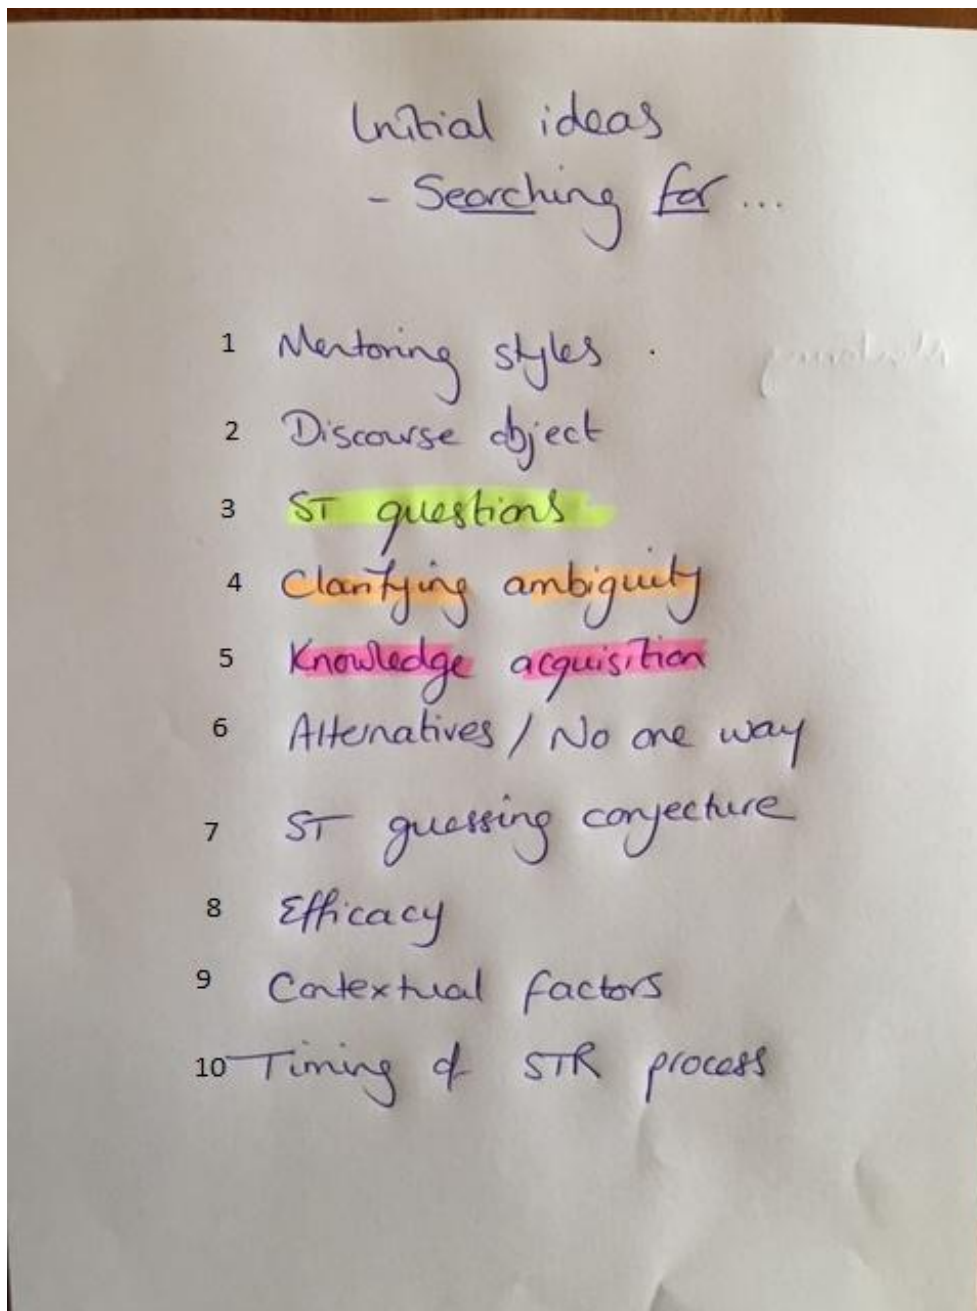 Initial ideas
- Searching for ...
1 Mentoring styles
2 Discourse object
3 ST questions
4 Clarifying ambiguity
5 Knowledge acquisition
6 Alternatives / No one way
7 ST guessing conjecture
8 Efficacy
9 Contextual factors
10 Timing of STR process